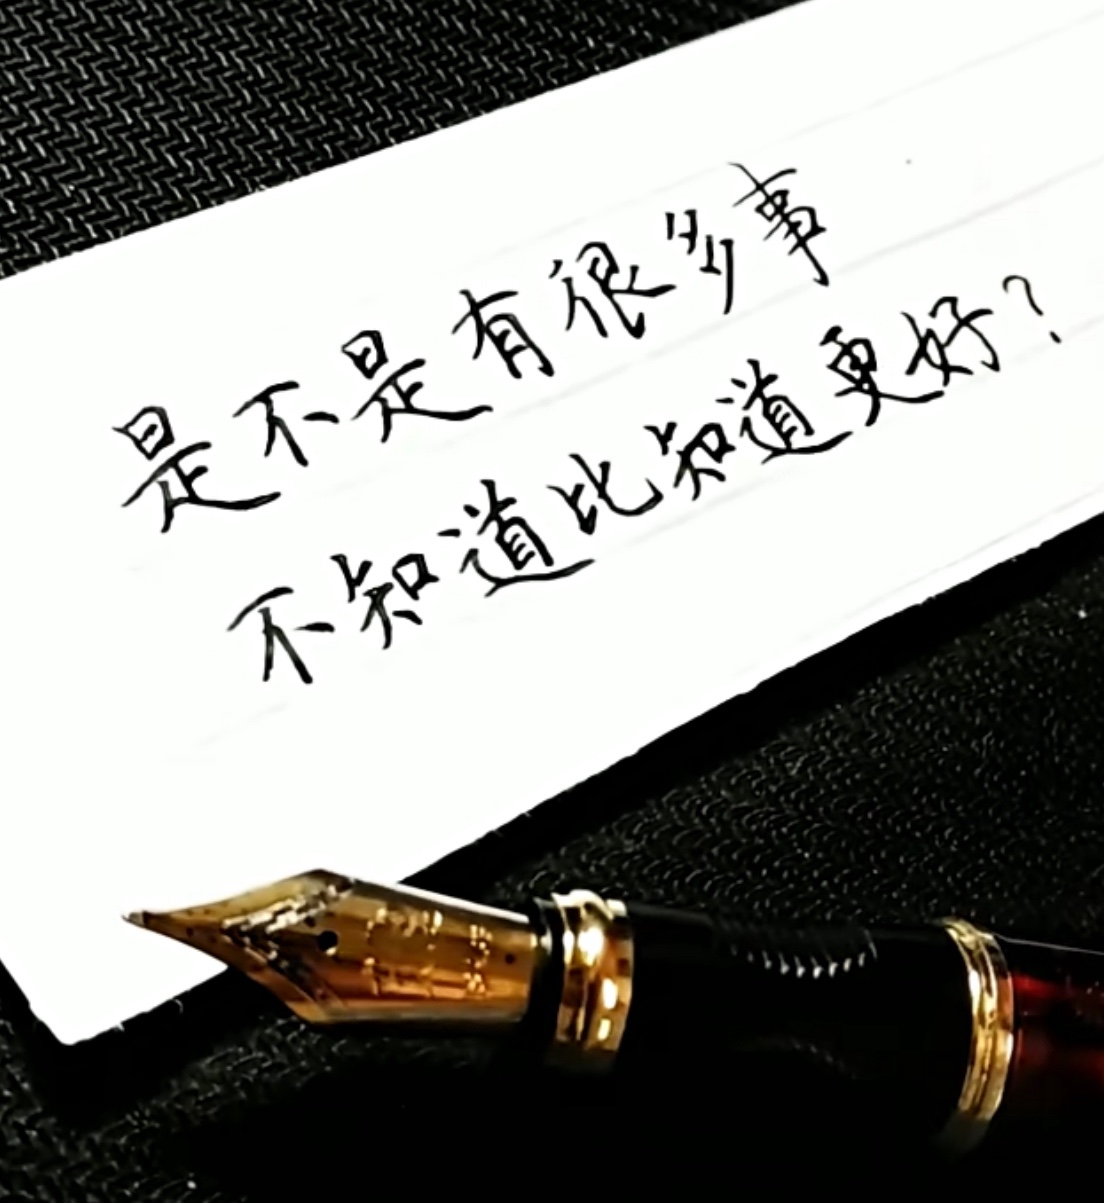 是不是有很多事
不知道比知道更好？